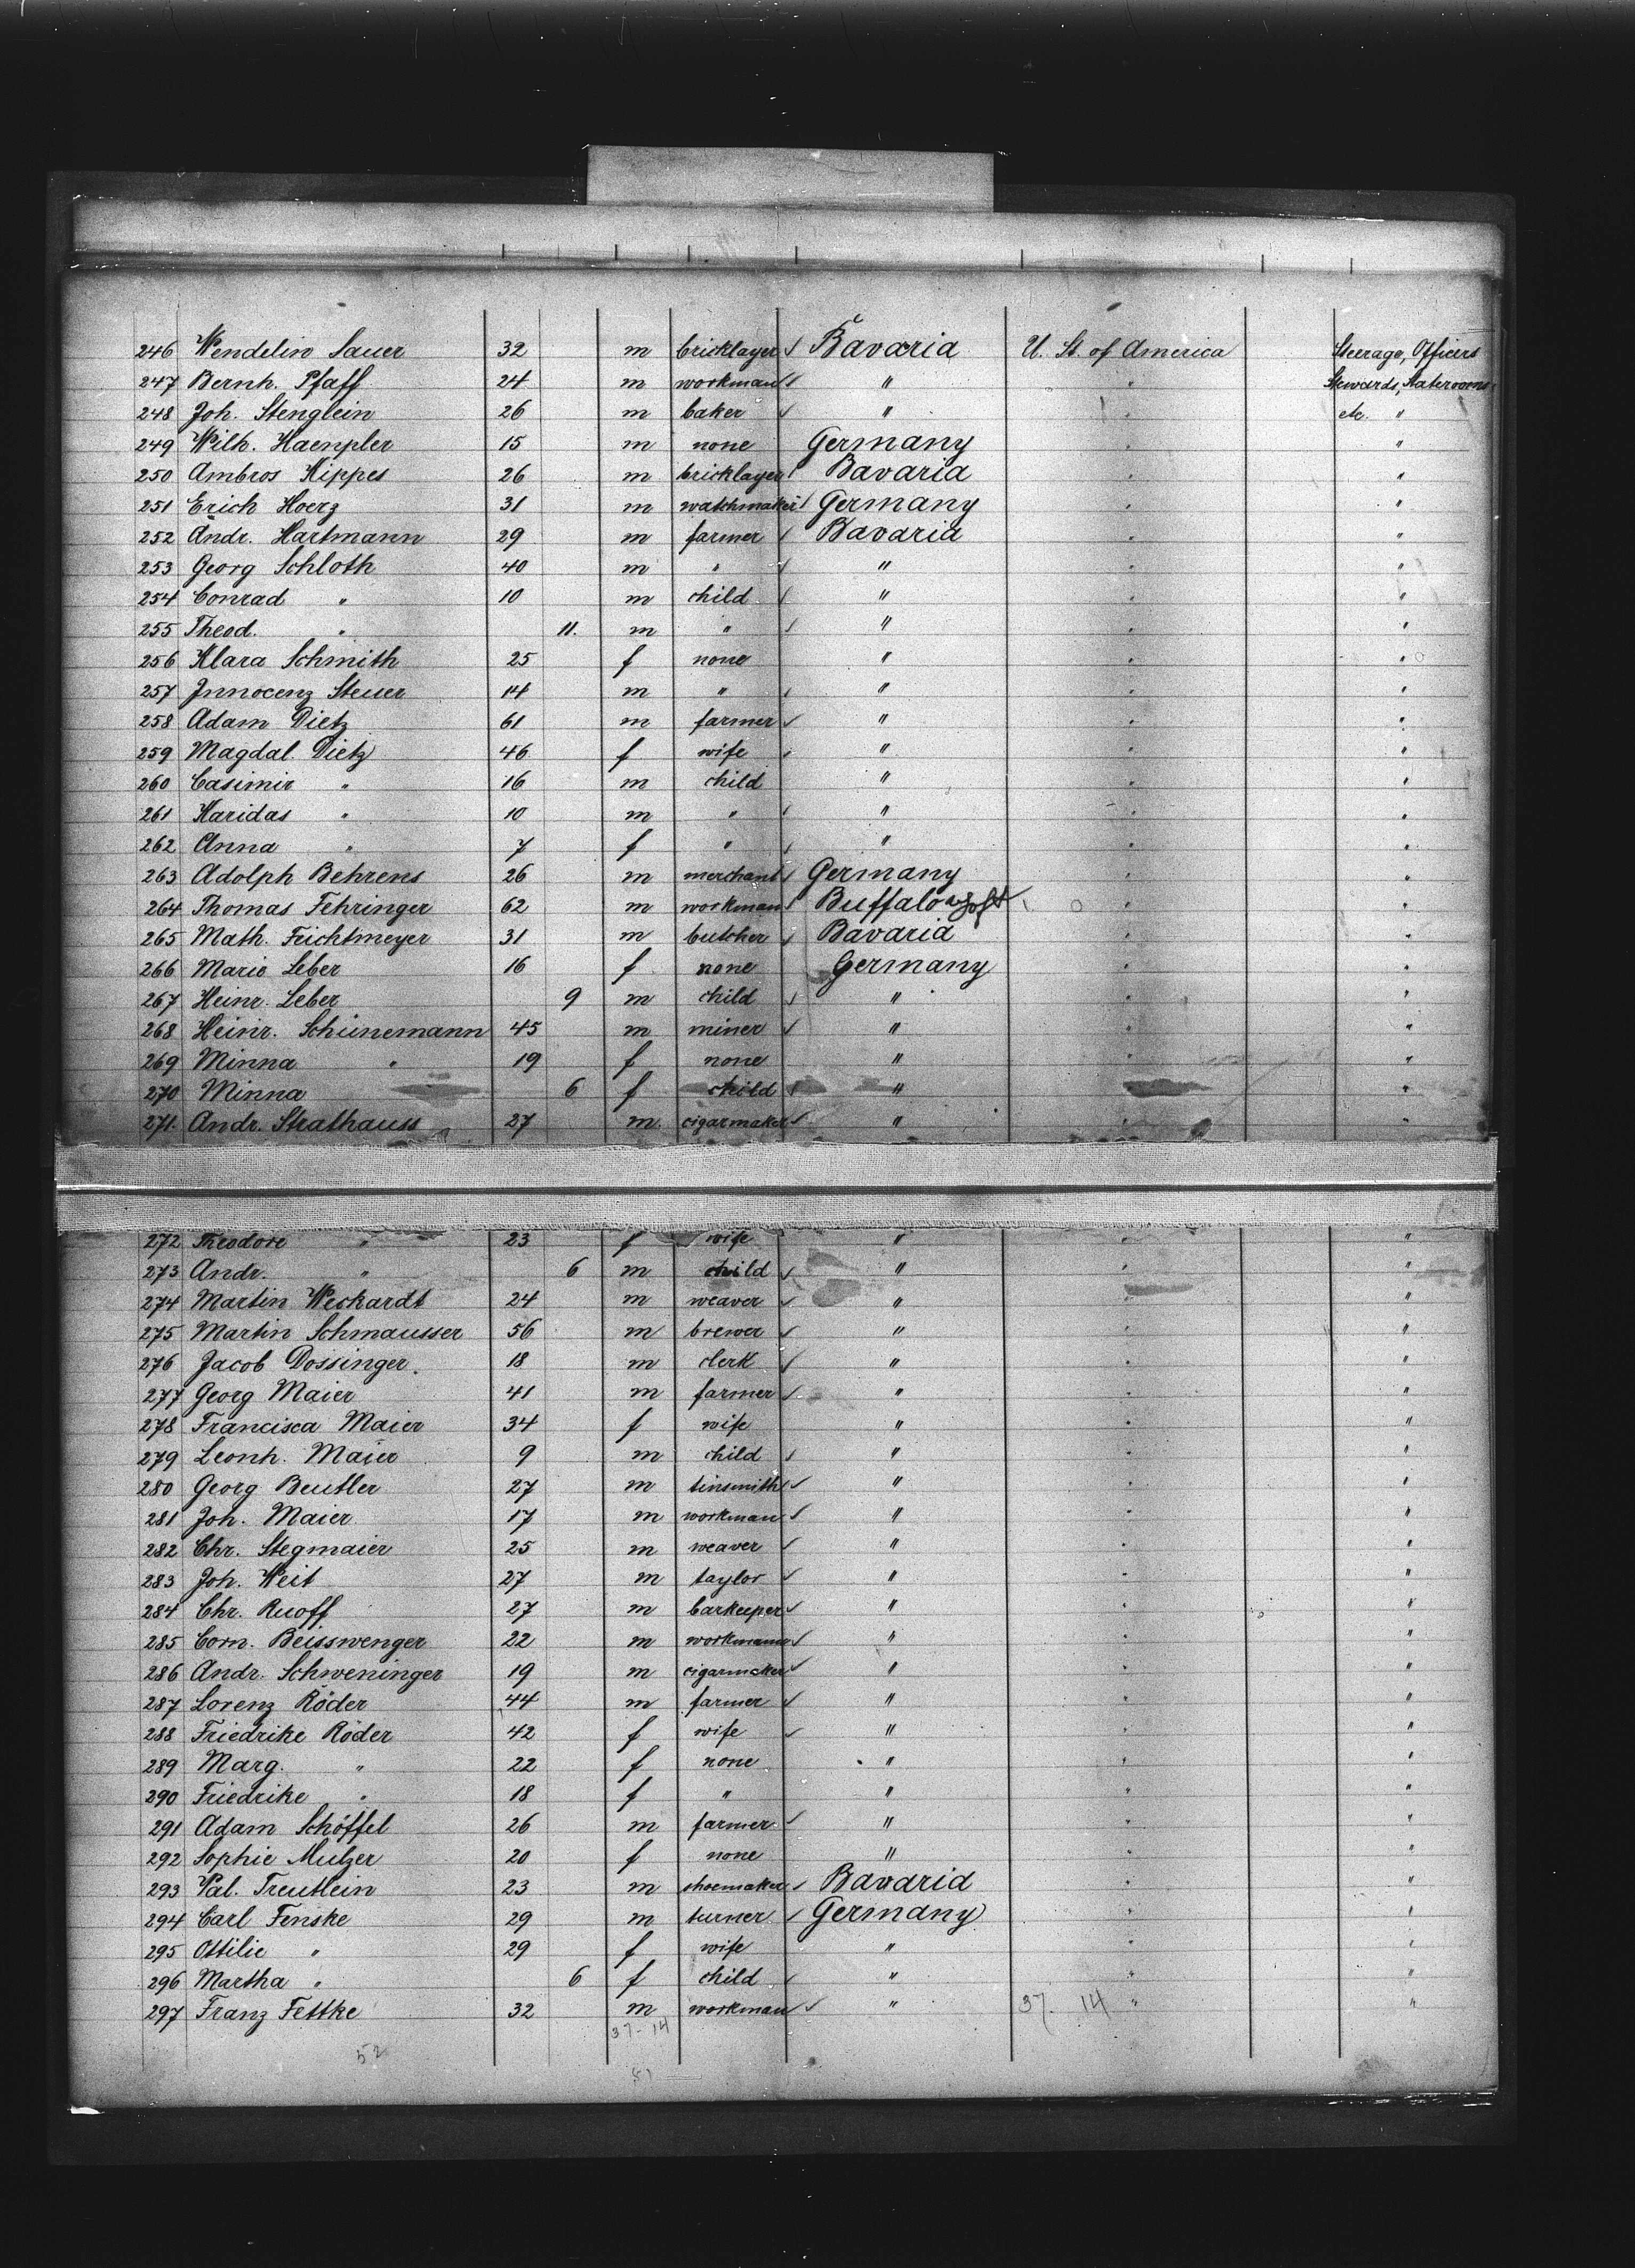 246 Wendelin Sauer 32 m bricklayer ✓ Bavaria U. St. of America Steerage, Officers
247 Bernh. Pfaff 24 m workman ✓ " " Stewards, Staterooms
248 Joh. Stenglein 26 m baker ✓ " " etc. "
249 Wilh. Haenpler 15 m none Germany " "
250 Ambros Kippes 26 m bricklayer ✓ Bavaria " "
251 Erich Hoerz 31 m watchmaker ✓ Germany " "
252 Andr. Hartmann 29 m farmer ✓ Bavaria " "
253 Georg Schloth 40 m " ✓ " " "
254 Conrad " 10 m child ✓ " " "
255 Theod. " 11. m " ✓ " " "
256 Klara Schmith 25 f none " " "
257 Innocenz Steuer 14 m " ✓ " " "
258 Adam Dietz 61 m farmer ✓ " " "
259 Magdal. Dietz 46 f wife ✓ " " "
260 Casimir " 16 m child " " "
261 Karidas " 10 m " ✓ " " "
262 Anna " 7 f " ✓ " " "
263 Adolph Behrens 26 m merchant ✓ Germany " "
264 Thomas Fehringer 62 m workman ✓ Buffalo " "
265 Math. Feichtmeyer 31 m butcher ✓ Bavaria " "
266 Marie Leber 16 f none Germany " "
267 Heinr. Leber 9 m child ✓ " " "
268 Heinr. Schünemann 45 m miner ✓ " " "
269 Minna " 19 f none " " "
270 Minna 6 f child ✓ " "
271. Andr. Strathauss 27 m cigarmaker ✓ " " "
272 Theodore " 23 f wife " " "
273 Andr. " 6 m child ✓ " " "
274 Martin Weckardt 24 m weaver ✓ " " "
275 Martin Schmausser 56 m brewer ✓ " " "
276 Jacob Dossinger. 18 m clerk ✓ " " "
277 Georg Maier 41 m farmer ✓ " " "
278 Francisca Maier 34 f wife " " "
279 Leonh. Maier 9 m child ✓ " " "
280 Georg Beutler 27 m tinsmith ✓ " " "
281 Joh. Maier 17 m workman ✓ " " "
282 Chr. Stegmaier 25 m weaver ✓ " " "
283 Joh. Weit 27 m taylor ✓ " " "
284 Chr. Ruoff 27 m barkeeper ✓ " " "
285 Corn. Beisswenger 22 m workmann ✓ " " "
286 Andr. Schweninger 19 m cigarmaker ✓ " " "
287 Lorenz Röder 44 m farmer ✓ " " "
288 Friedrike Röder 42 f wife ✓ " " "
289 Marg. " 22 f none " " "
290 Friedrike " 18 f " " " "
291 Adam Schöffel 26 m farmer ✓ " " "
292 Sophie Mulzer 20 f none " " "
293 Val. Treutlein 23 m shoemaker ✓ Bavaria " "
294 Carl Fenske 29 m turner ✓ Germany " "
295 Ottilie " 29 f wife " " "
296 Martha " 6 f child ✓ " " "
297 Franz Fettke 32 m workman ✓ " 37. 14 " "
37-14
52